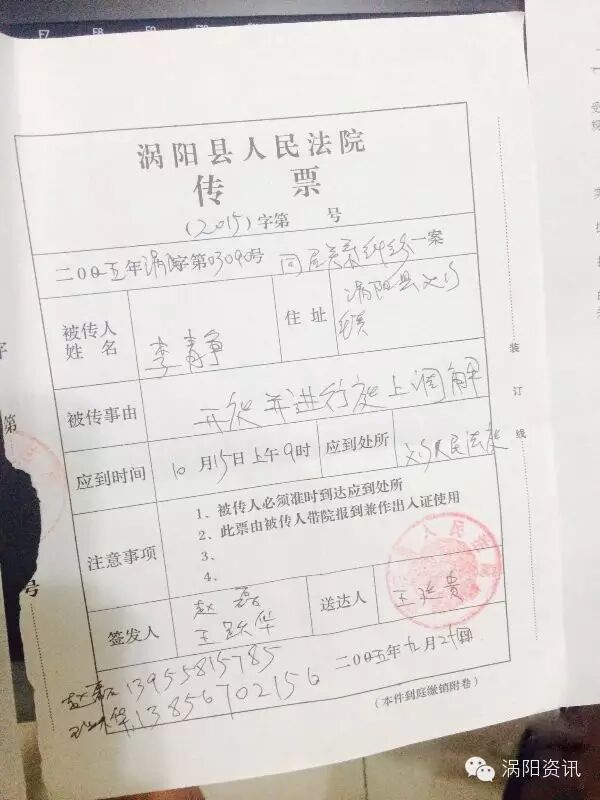 F7 F8 F9
涡阳县人民法院
传 票
(2015)字第 号
二00五年涡民字第03090号 同居关系纠纷一案
被传人姓名 李青争 住址 涡阳县义门镇
被传事由 开庭并进行庭上调解
应到时间 10月15日上午9时 应到处所 义门人民法庭
注意事项
1、被传人必须准时到达应到处所
2、此票由被传人带院报到兼作出入证使用
3、
4、
签发人 赵磊 王跃华 送达人 王廷贵
人民法院
二00五年九月
赵磊 13955815785
王跃华 13856702156
(本件到庭缴销附卷)
装订线
字
第
号
涡阳资讯